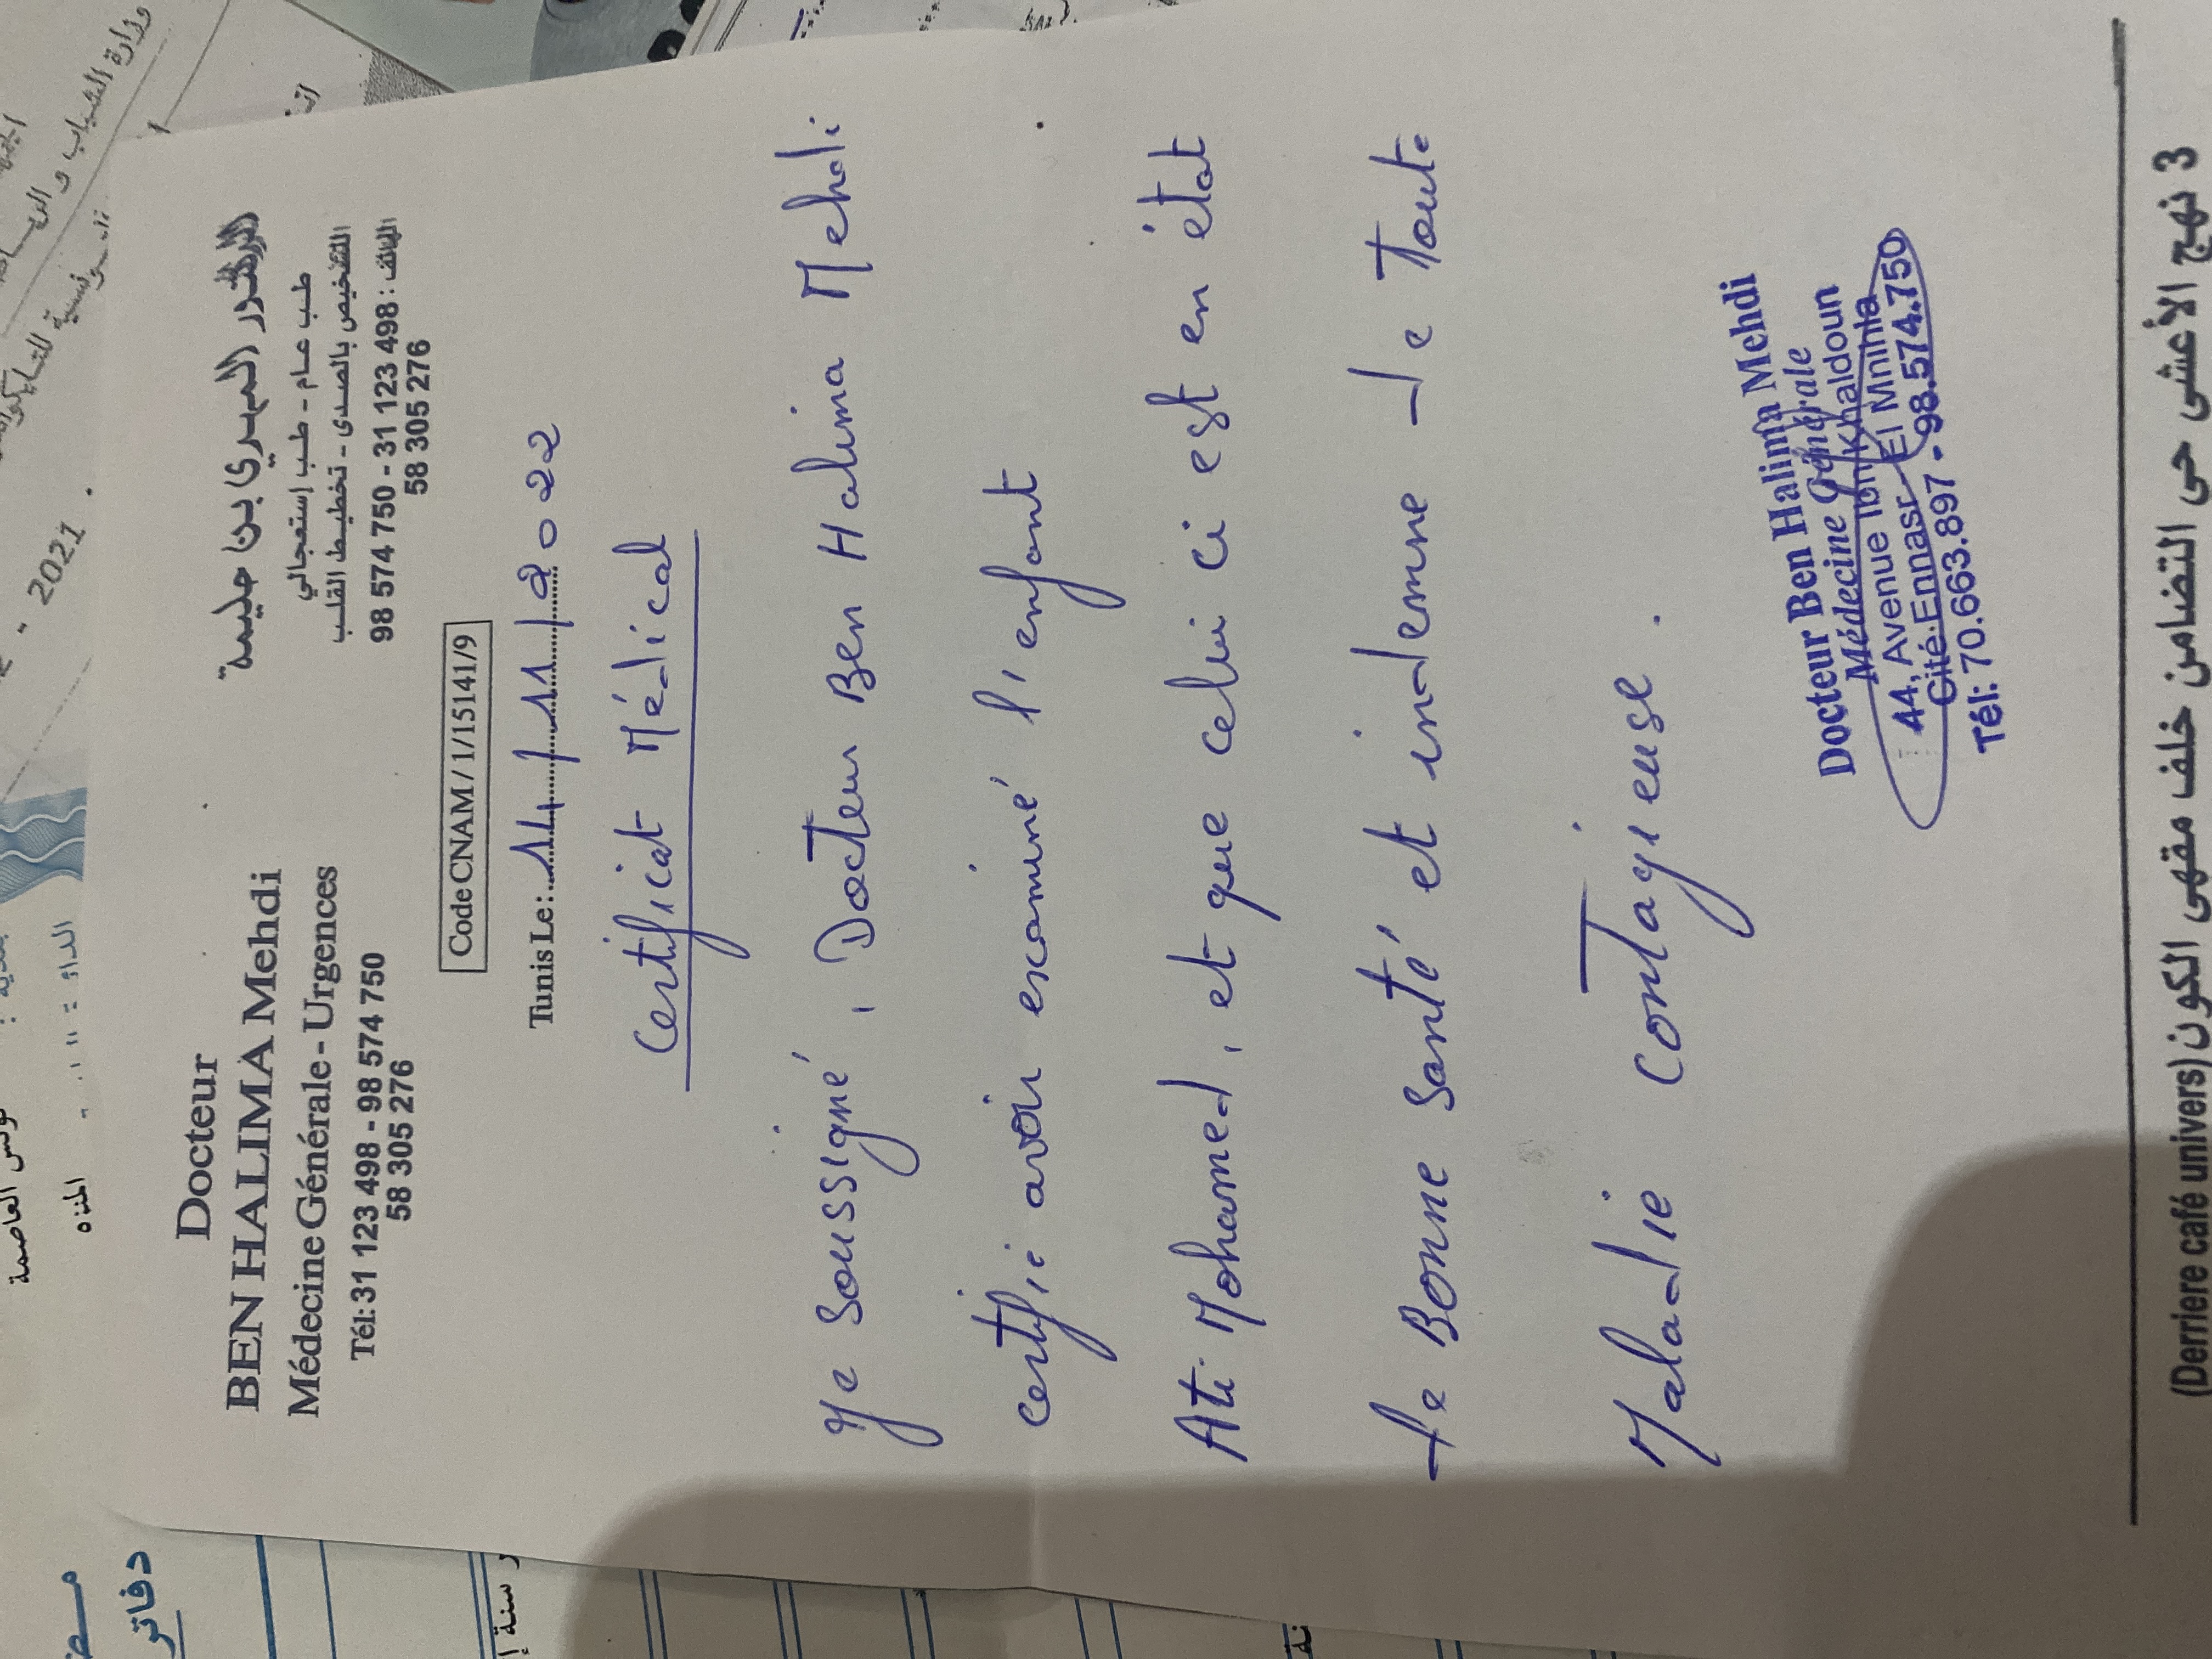 Docteur
BEN HALIMA Mehdi
Médecine Générale - Urgences
Tél: 31 123 498 - 98 574 750
58 305 276
الدكتور المهدي بن حليمة
طب عام - طب إستعجالي
التشخيص بالصدى - تخطيط القلب
الهاتف : 98 574 750 - 31 123 498
58 305 276
Code CNAM / 1/15141/9
Tunis Le : 14/11/2022
Certificat Médical
Je soussigné, Docteur Ben Halima Mehdi
certifie avoir examiné l'enfant
Ati Mohamed, et que celui ci est en état
de Bonne Santé et indemne de Toute
Maladie contagieuse.
Docteur Ben Halima Mehdi
Médecine Générale
44, Avenue Ibn Khaldoun
Cité Ennasr El Mnihla
Tél: 70.663.897 - 98.574.750
3 نهج الأعشى حي التضامن خلف مقهى الكون (Derriere café univers)
2021
دفاتر